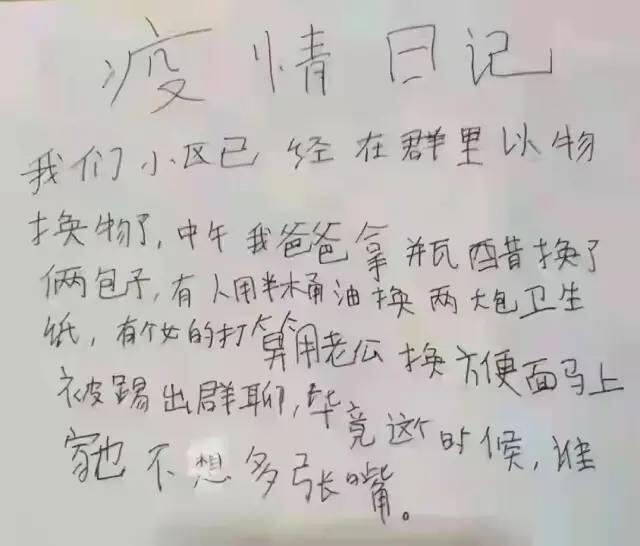 疫情日记
我们小区已经在群里以物
换物了,中午我爸爸拿瓶醋换了
俩包子,有人用半桶油换两大包卫生
纸,有个女的打算用老公换方便面马上
被踢出群聊,毕竟这个时候,谁
家也不想多张嘴。